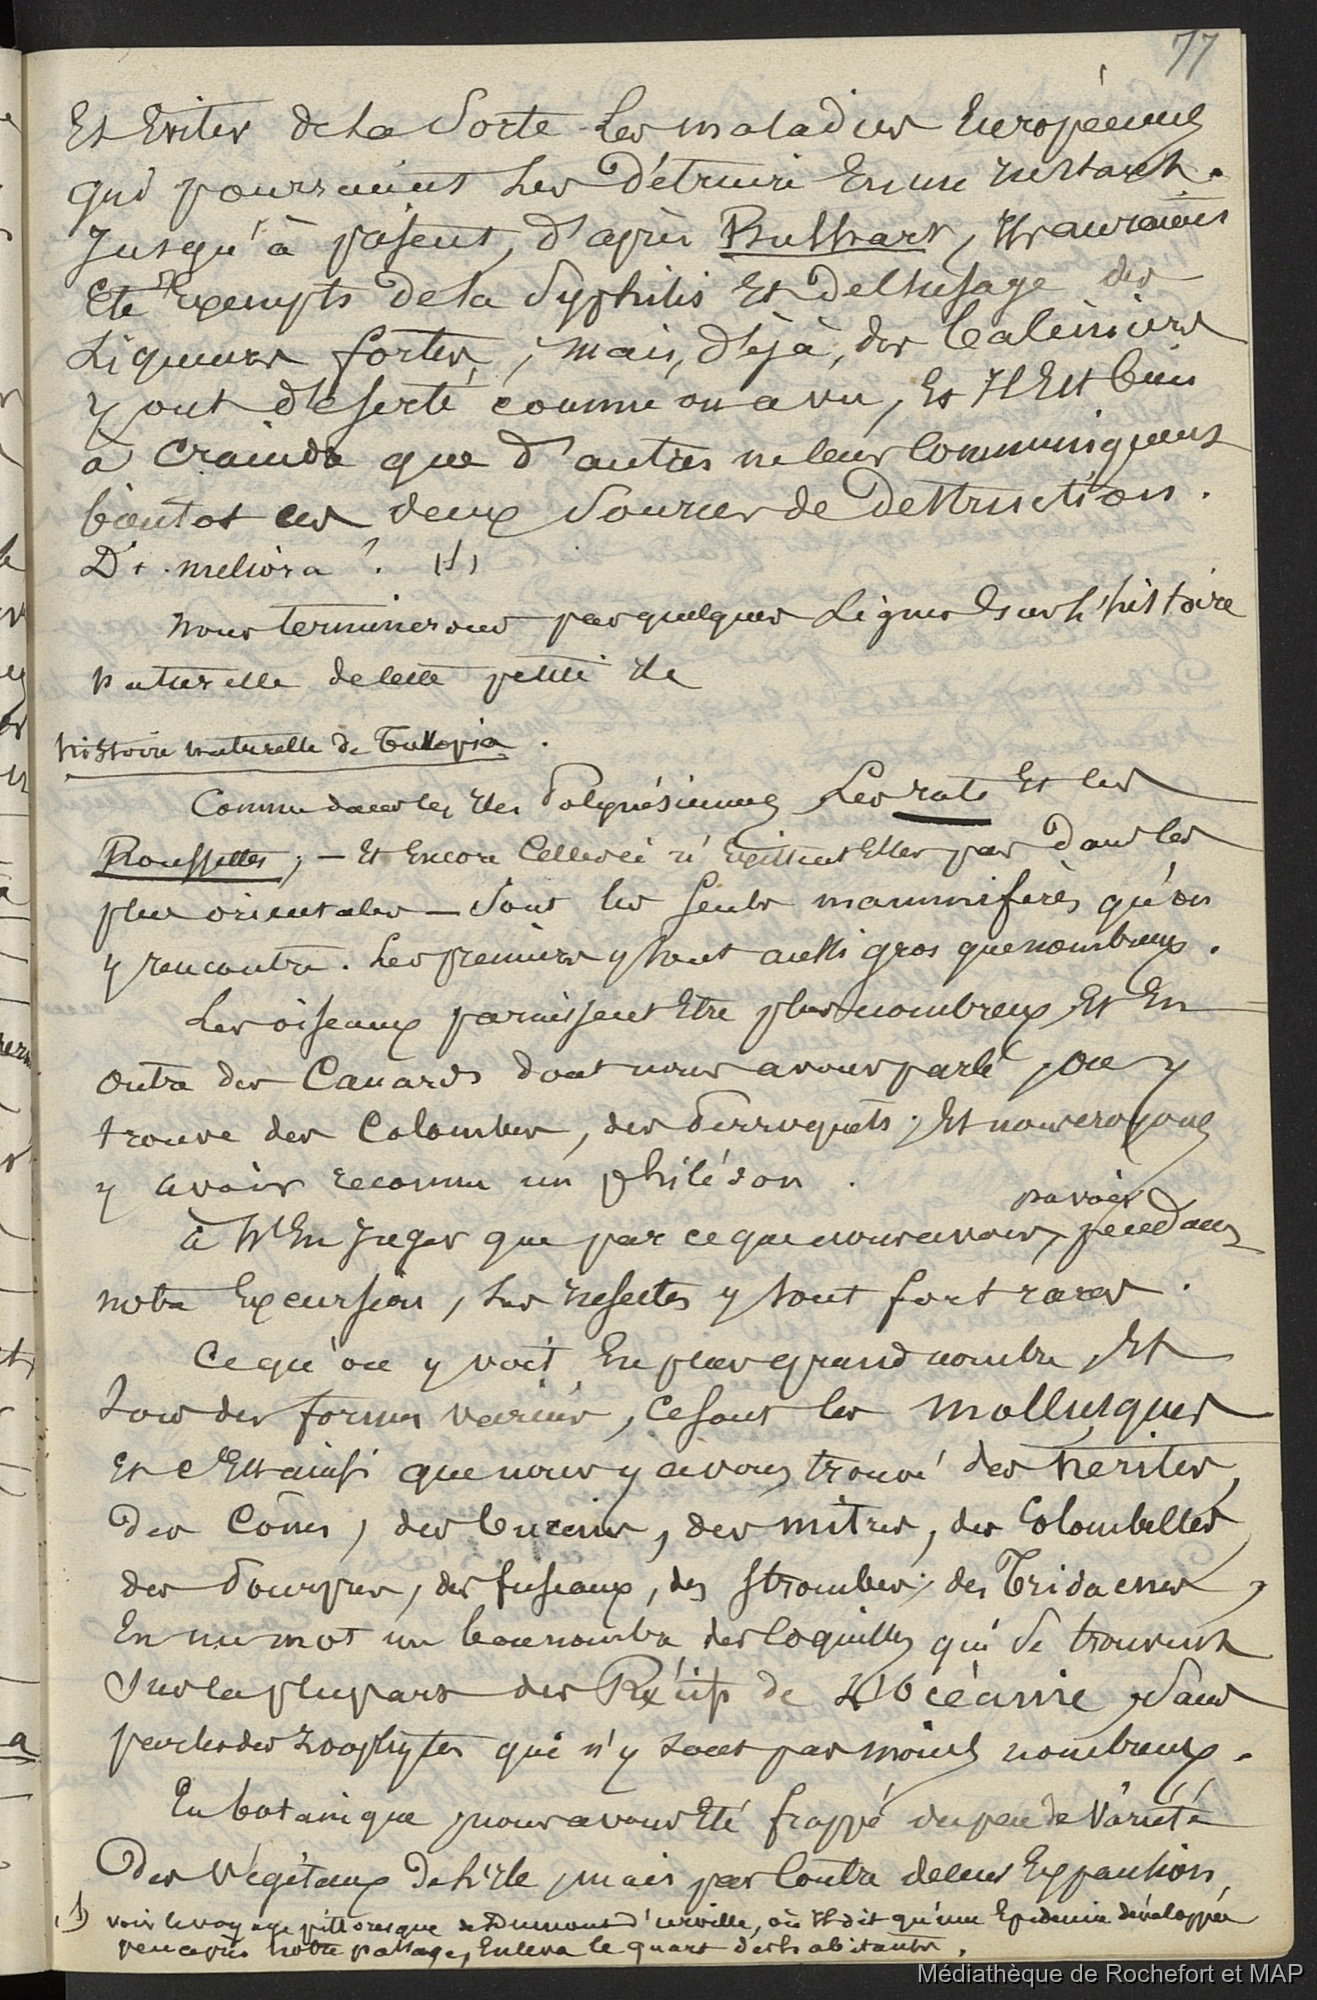 77
Et Eviter de la Sorte les maladies Européennes
qui pourraient les Détruire En un instant.
Jusqu'à présent, d'après Bushart, Ils auraient
été Exempts de la Syphilis Et de l'usage des
Liqueurs fortes, ; mais, déjà, des baleiniers
y ont déserté comme on a vu, Et Il Est bien
à craindre que d'autres ne leur Communiquent
bientot ces deux Sources de Destruction.
Di meliora ! (1)
nous terminerons par quelques Lignes sur l'histoire
naturelle de cette petite Ile
histoire naturelle de Tukopia.
Comme dans les Iles Polynésiennes Les rats Et les
Roussettes, — Et Encore Celles-ci n'Existent Elles pas Dans les
plus orientales — Sont les seuls mammifères qu'on
y rencontre. Les premiers y sont aussi gros que nombreux.
Les oiseaux paraissent Etre plus nombreux Et En
outre des Canards dont nous avons parlé, on y
trouve des Colombes, des Perroquets, Et nous croyons
y avoir reconnu un philédon.
à n'En Juger que par ce que nous avons pu voir pendant
notre Excursion, les Insectes y sont fort rares.
Ce qu'on y voit En plus grand nombre, Et
Sous des formes variées, ce sont les mollusques
Et c'Est ainsi que nous y avons trouvé des nérites,
Des Cônes, des buccins, des mitres, des Colombelles,
des Pourpres, des fuseaux, des strombes, des Tridacnes,
En un mot un bon nombre des Coquilles qui se trouvent
Sur la plupart des Récifs de L'Océanie, Sans
parler des zoophytes qui n'y sont pas moins nombreux.
En botanique, nous avons Eté frappé du peu de variété
Des végétaux de l'Ile, mais par Contre de leur Expansion,
(1) voir le voyage pittoresque de Dumont d'urville, où Il dit qu'une Epidémie développée
peu après notre passage, Enleva le quart des habitants.
Médiathèque de Rochefort et MAP